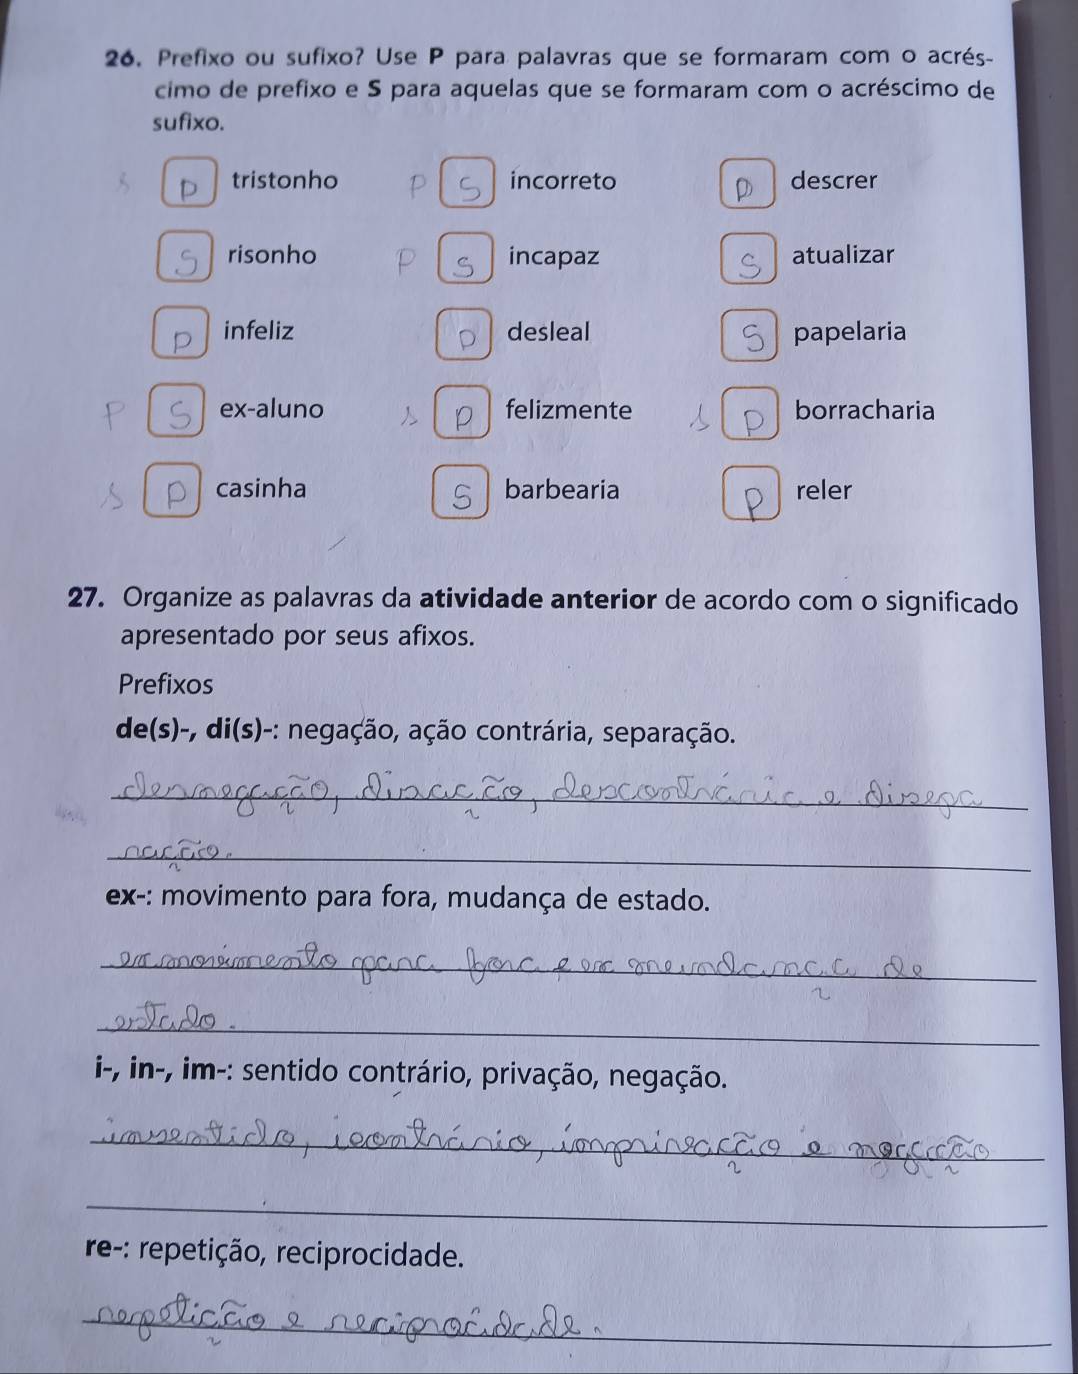 26. Prefixo ou sufixo? Use P para palavras que se formaram com o acrés-
cimo de prefixo e S para aquelas que se formaram com o acréscimo de
sufixo.
s P tristonho P S incorreto P descrer
S risonho P S incapaz S atualizar
P infeliz P desleal S papelaria
P S ex-aluno s P felizmente s P borracharia
s P casinha S barbearia P reler
27. Organize as palavras da atividade anterior de acordo com o significado
apresentado por seus afixos.
Prefixos
de(s)-, di(s)-: negação, ação contrária, separação.
desnegação, disacção, descontrária e disepa
ração.
ex-: movimento para fora, mudança de estado.
exmovimento para fora e ex mundança de
estado.
i-, in-, im-: sentido contrário, privação, negação.
insentido, icontrário, imprivação e negação
re-: repetição, reciprocidade.
repetição e reciprocidade.